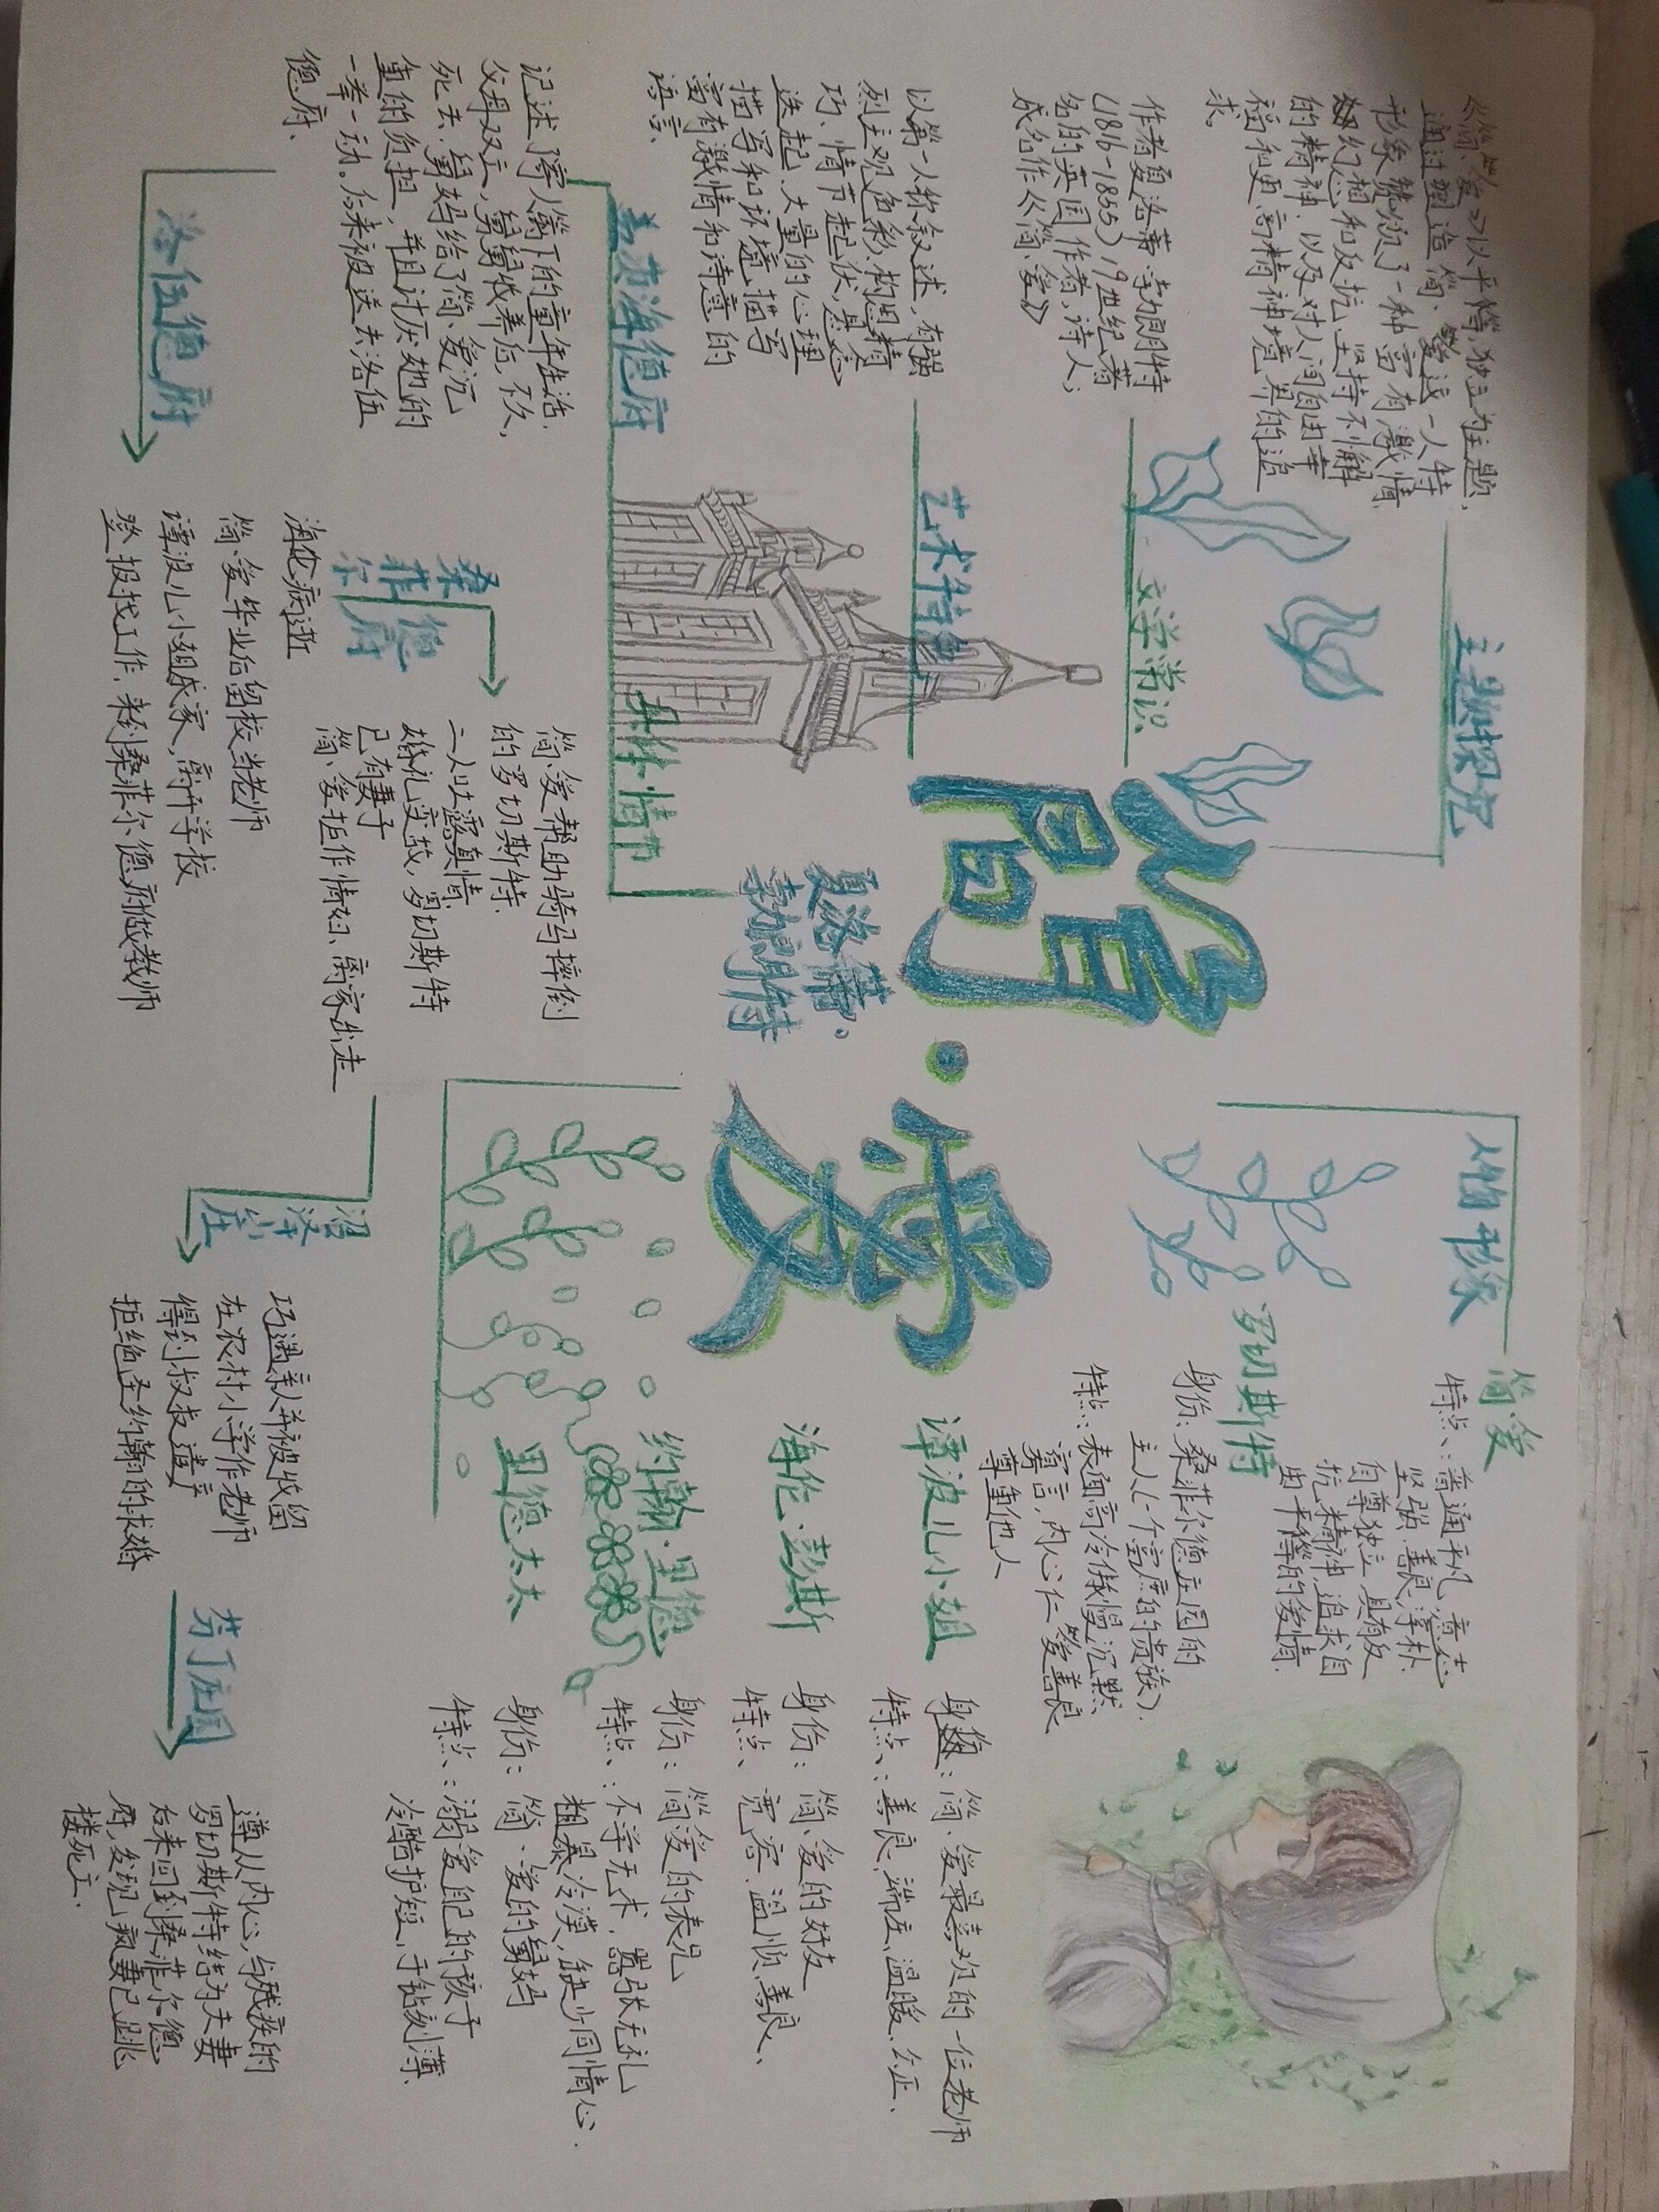 简·爱
夏洛蒂·
勃朗特
主题探究
《简·爱》以平等，独立为主题，
通过塑造简·爱这一人特
形象赞颂了一种富有激情
幻想和反抗、坚持不懈
的精神，以及对人间自由幸
福和更高精神境界的追
求。
文学常识
作者夏洛蒂·勃朗特
(1816-1855) 19世纪著
名的英国作者，诗人；
成名作《简·爱》
艺术特
以第一人称叙述，有强
烈主观色彩，构思精
巧、情节起伏，悬念
迭起、大量的心理
描写和环境描写
富有激情和诗意的
语言、
具体情节
盖茨海德府
记述了寄人篱下的童年生活，
父母双亡，舅舅收养后，不久，
死去、舅妈给了简·爱沉
重的负担，并且讨厌她的
一拳一动。后来被送去洛伍
德府、
洛伍德府
海伦病逝
简·爱毕业后留校当老师
谭波儿小姐成家，离开学校
登报找工作，来到桑菲尔德府做教师
桑菲尔德府
简·爱帮助骑马摔倒
的罗切斯特、
二人吐露真情、
婚礼变故，罗切斯特
已有妻子
简·爱拒作情妇、离家出走
沼泽山庄
巧遇亲人并被收留
在农村小学作老师
得到叔叔遗产
拒绝圣约翰的求婚
芬丁庄园
遵从内心，与残疾的
罗切斯特结为夫妻
后来回到桑菲尔德
府，发现疯妻已跳
楼死亡、
人物形象
简爱
特点：普通平凡、意志
坚强、善良、淳朴、
自尊独立、具有反
抗精神，追求自
由平等的爱情、
罗切斯特
身份：桑菲尔德庄园的
主人(一个富庶的贵族)、
特点：表面高冷傲慢沉默
寡言，内心仁爱善良
尊重他人
谭波儿小姐
身份：简·爱最喜欢的一位老师
特点：善良、端庄、温暖、公正、
海伦·彭斯
身份：简·爱的好友
特点、宽容、温顺、善良、
约翰·里德
身份：简爱的表兄
特点：不学无术，嚣张无礼
粗暴冷漠，缺少同情心、
里德太太
身份：简·爱的舅妈
特点：溺爱自己的孩子
冷酷护短，于刻薄、